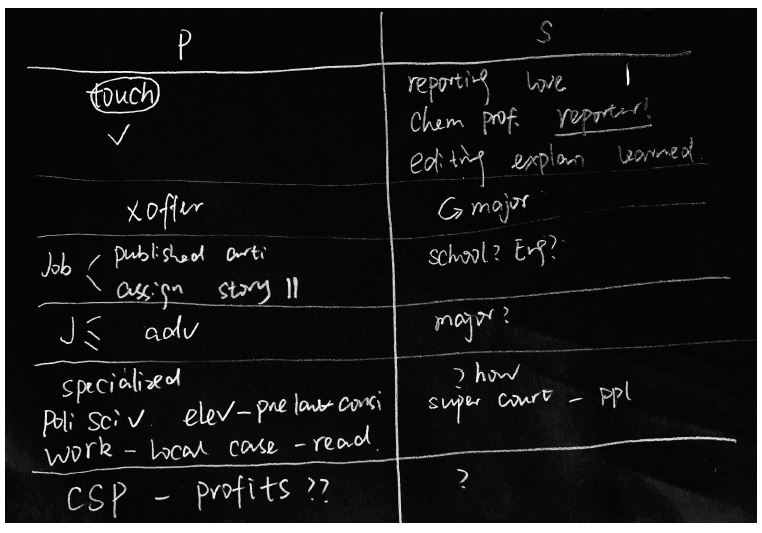 P
S
touch
✓
reporting love 1
chem prof. reporter!
editing explain learned.
x offer
↪ major
Job < published arti
assign story ||
school? Eng?
J adv
major?
specialized
Poli Sci v. elev - pre law - consi
work - local case - read.
? how
super court - ppl
CSP - profits ??
?